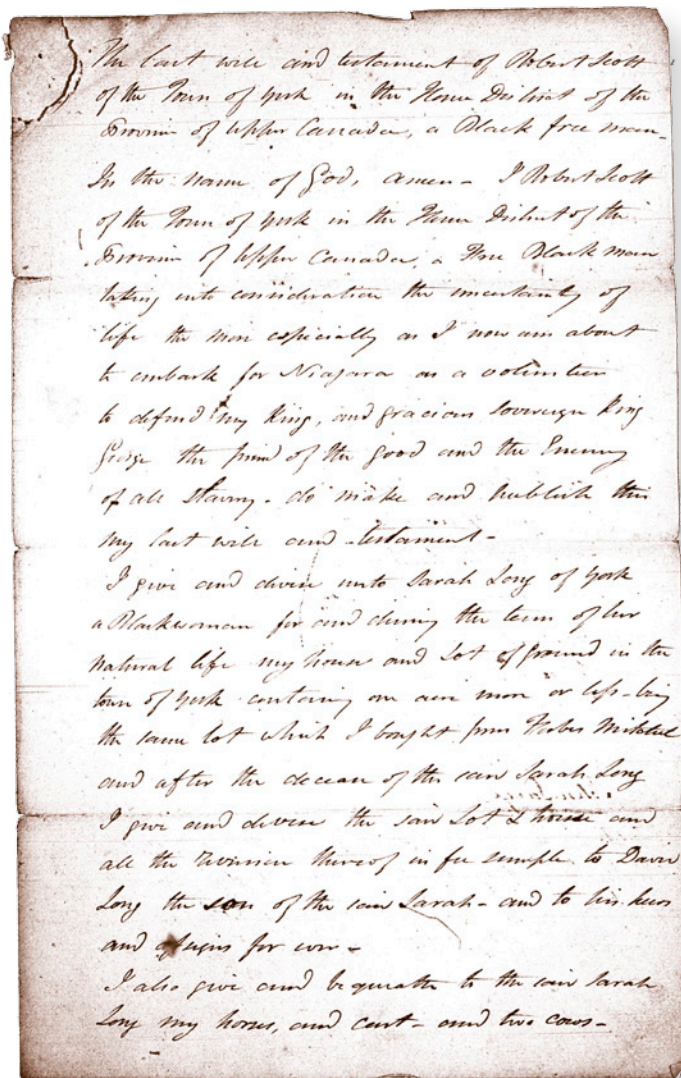 The last will and testament of Robert Scott
of the Town of York in the Home District of the
Province of Upper Canada, a Black free man-
In the name of God, amen - I Robert Scott
of the Town of York in the Home District of the
Province of Upper Canada, a Free Black man
taking into consideration the uncertainty of
life the more especially as I now am about
to embark for Niagara as a volunteer
to defend my King, and gracious sovereign King
George the friend of the good and the Enemy
of all slavery - do make and publish this
my last will and testament -
I give and devise unto Sarah Long of York
a Blackwoman for and during the term of her
natural life my house and Lot of ground in the
town of York containing one acre more or less - being
the same lot which I bought from Forbes Mitchel
and after the decease of the said Sarah Long
I give and devise the said Lot & house and
all the reversion thereof in fee simple to David
Long the son of the said Sarah - and to his heirs
and assigns for ever -
I also give and bequeath to the said Sarah
Long my horses, and cart - and two cows -